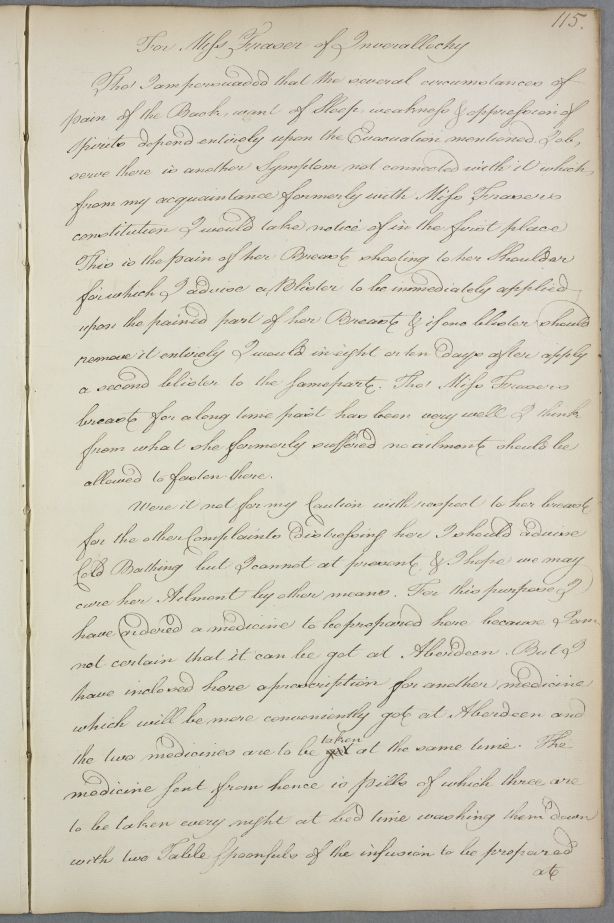 115.
For Miss Fraser of Inverallochy
Tho' I am persuaded that the several circumstances of
pain of the Back, want of Sleep, weakness & oppression of
spirits depend entirely upon the Evacuation mentioned I ob,
serve there is another Symptom not connected with it which
from my acquaintance formerly with Miss Frasers
constitution I would take notice of in the first place
This is the pain of her Breast shooting to her Shoulder
for which I advise a Blister to be immediately applied
upon the pained part of her Breast & if one blister should
remove it entirely I would in eight or ten Days after apply
a second blister to the same part. Tho' Miss Frasers
breast for a long time past has been very well I think
from what she formerly suffered no ailment should be
allowed to fasten there.
Were it not for my Caution with respect to her breast
for the other Complaints distressing her I should advise
Cold Bathing but I cannot at present & I hope we may
cure her Ailment by other means. For this purpose I
have Ordered a medicine to be prepared here because I am
not certain that it can be got at Aberdeen. But I
have inclosed here a prescription for another medicine
which will be more conveniently got at Aberdeen and
the two medicines are to be taken at the same time. The
medicine sent from hence is pills of which three are
to be taken every night at bed time washing them down
with two Table spoonfuls of the infusion to be prepared
at